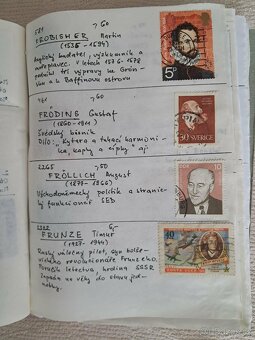 581 -,60
FROBISHER Martin
(1535-1594)
Anglický badatel, výzkumník a
mořeplavec. V letech 1576-1578
podnikl tři výpravy ke Grón-
sku a k Baffinovu ostrovu
5p
481 -,60
FRÖDING Gustaf
(1860-1911)
Švédský básník
Dílo: "Kytara a tahací harmoni-
ka, kapky a cípky" aj.
30 SVERIGE
2265 -,50
FRÖLLICH August
(1877-1966)
Východoněmecký politik a stranic-
ký funkcionář SED
10
FRUNZE Timur
(1923-1944)
Ruský válečný pilot, syn bolše-
vického revolucionáře Frunzeho.
Poručík letectva, hrdina SSSR
40